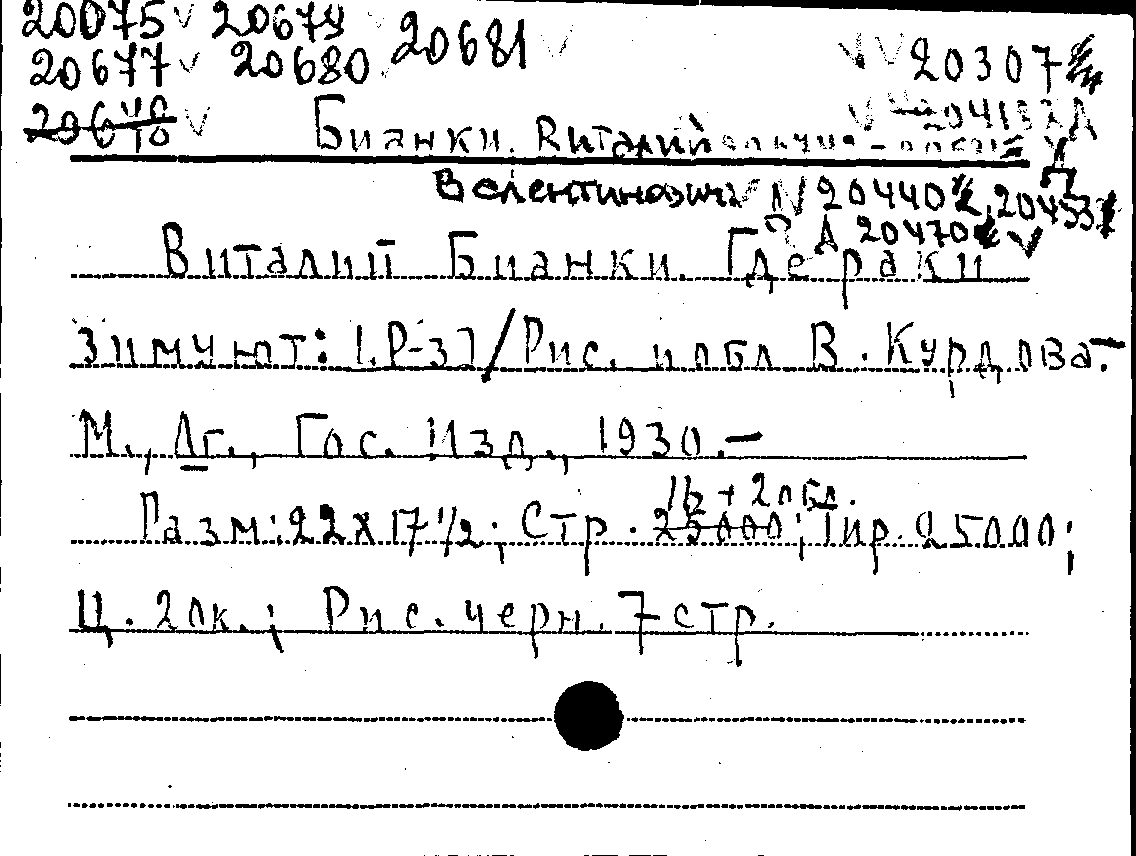 20075 V 20679 20681 V
20677 V 20680 V V 20307
V V
Бианки. Виталий
Валентинович V 20440 20453
20470 V
Виталий Бианки. Где раки
зимуют: [.Р-з] / Рис. и обл В. Курдова.-
М., Лг., Гос. Изд., 1930.-
16 + 2 обл.
Разм: 22 х 17 ½; Стр. 25000; Тир. 25000;
Ц. 20к.; Рис. черн. 7 стр.